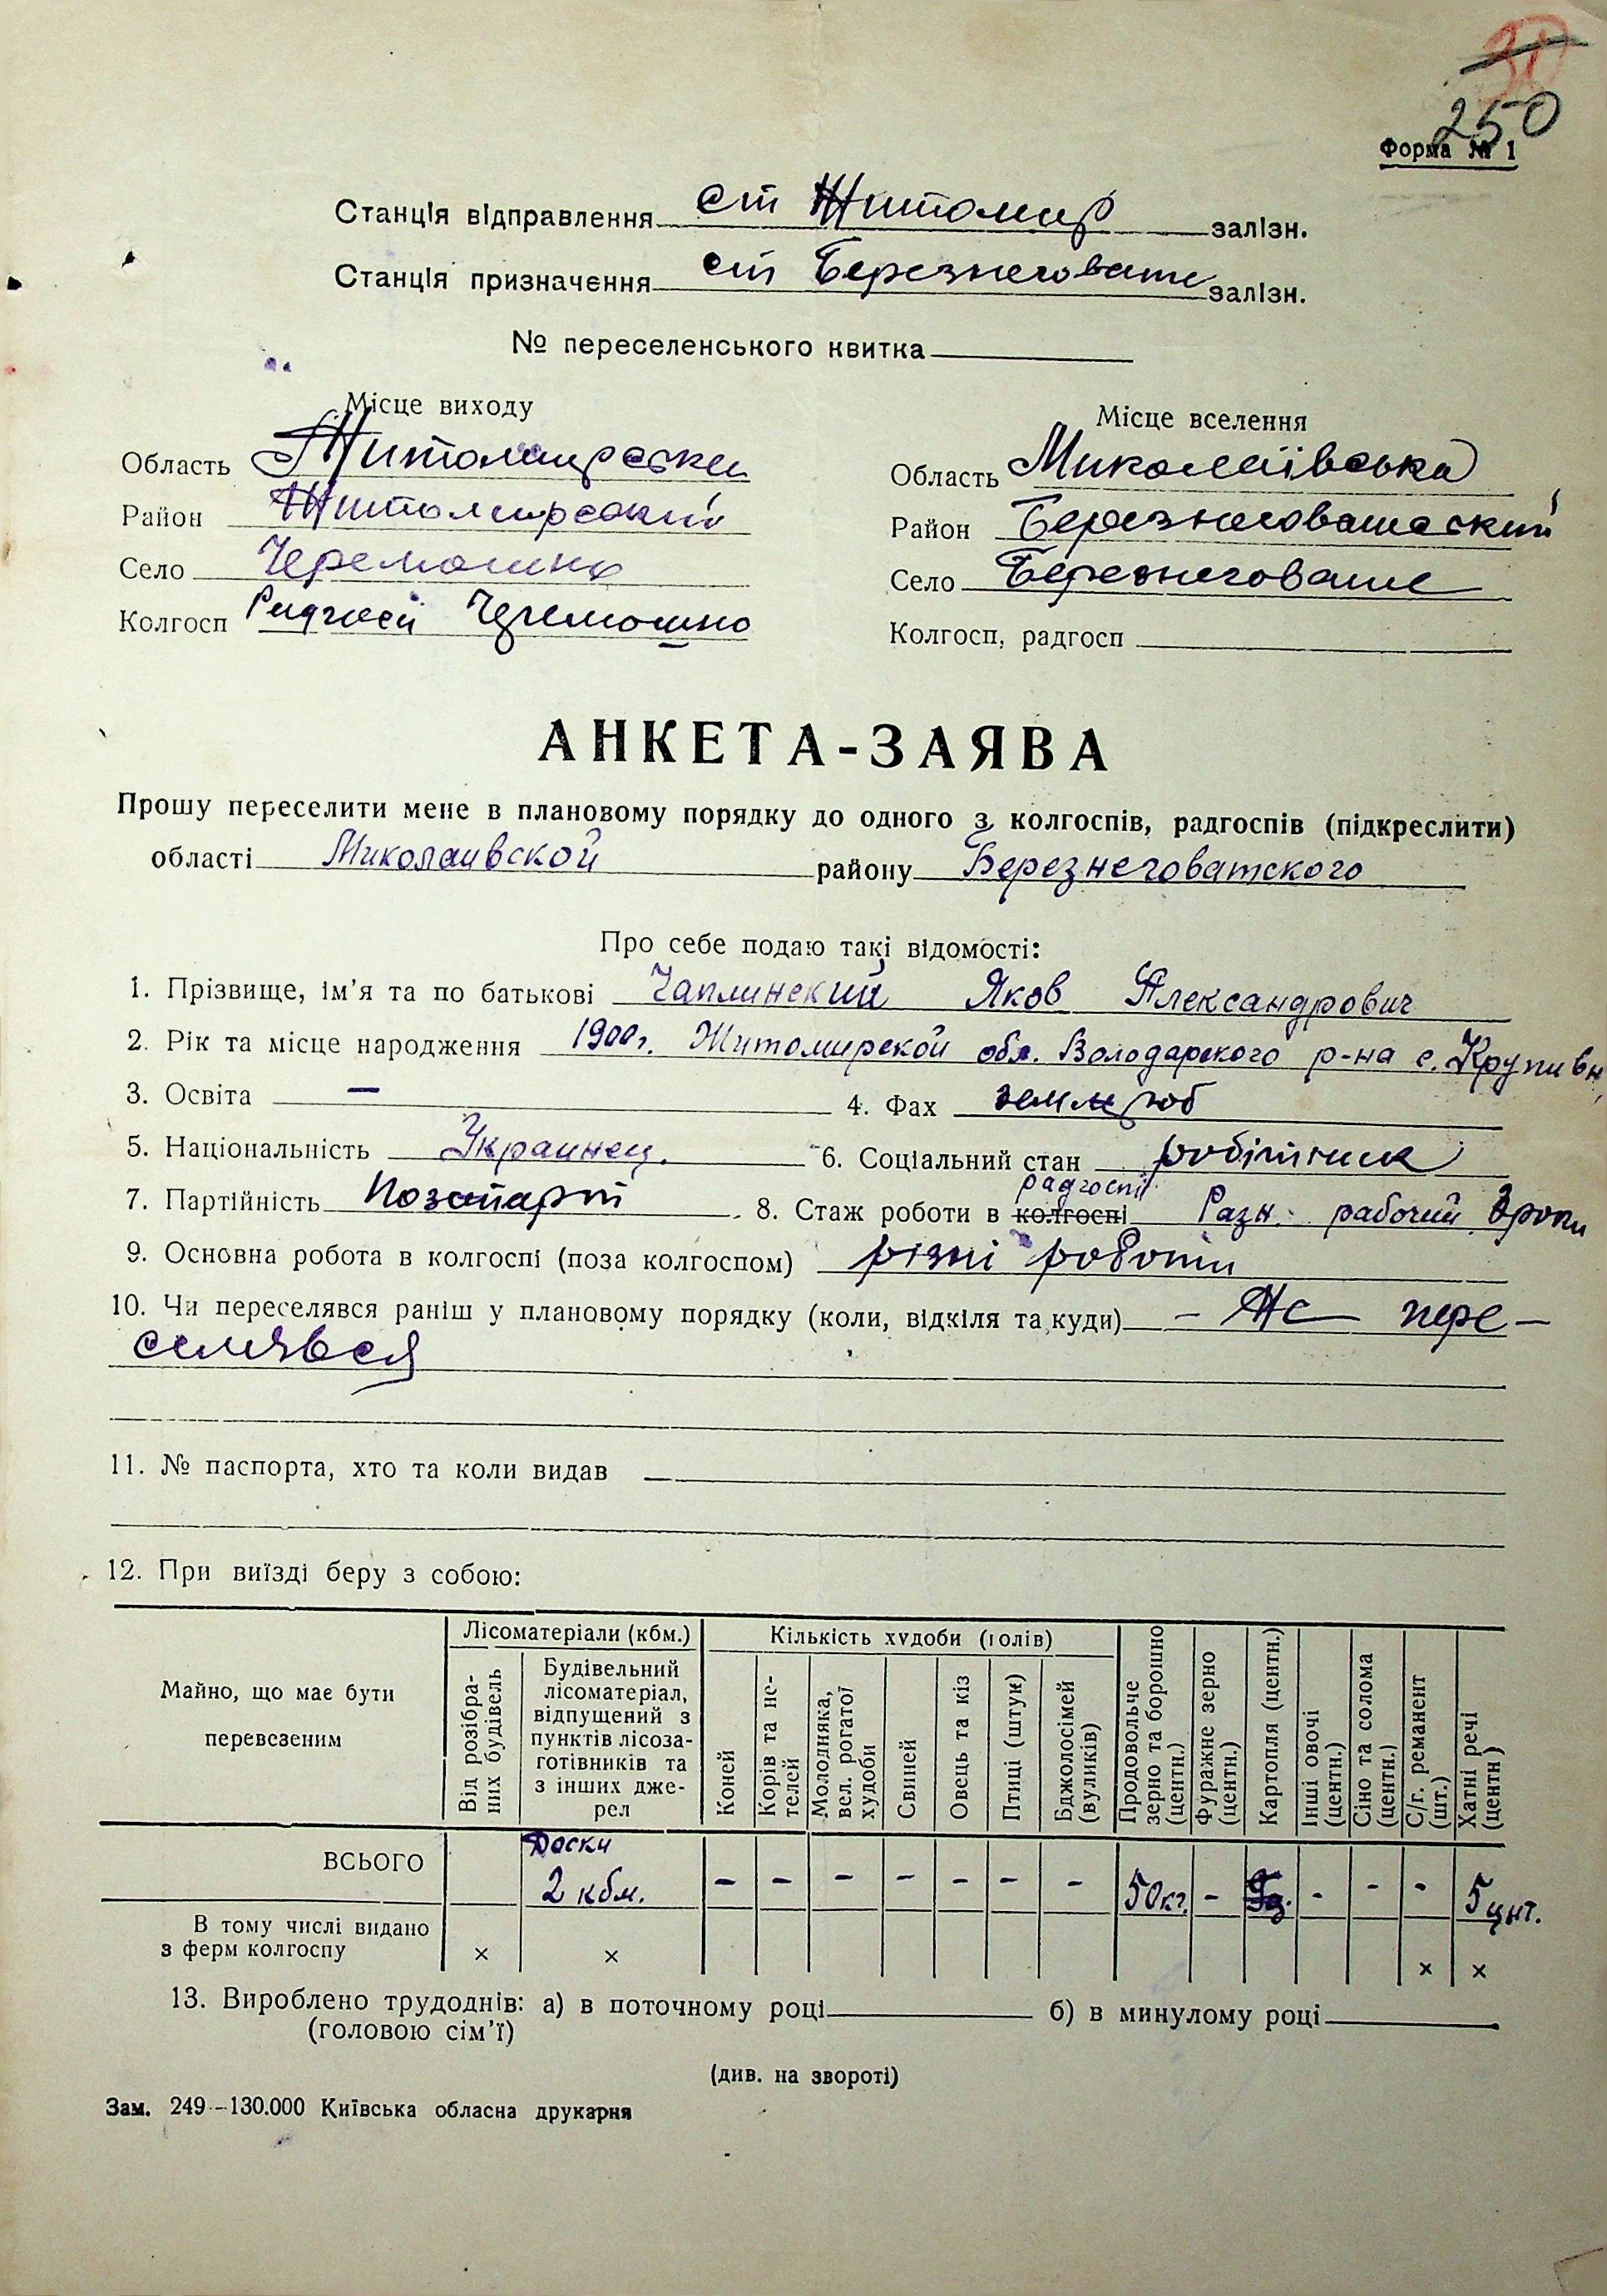 30
250
Форма № 1
Станція відправлення ст Житомир залізн.
Станція призначення ст Березнеговате залізн.
№ переселенського квитка
Місце виходу
Область Житомирська
Район Житомирський
Село Черемошно
Колгосп Радгосп Черемошно
Місце вселення
Область Миколаївська
Район Березнеговатский
Село Березнеговатє
Колгосп, радгосп
АНКЕТА-ЗАЯВА
Прошу переселити мене в плановому порядку до одного з колгоспів, радгоспів (підкреслити)
області Миколаивской району Березнеговатского
Про себе подаю такі відомості:
1. Прізвище, ім'я та по батькові Чаплинский Яков Александрович
2. Рік та місце народження 1900 г. Житомирской обл. Володарского р-на с. Крупивн
3. Освіта — 4. Фах землероб
5. Національність Украинец. 6. Соціальний стан робітник
7. Партійність позапарт 8. Стаж роботи в колгоспі радгоспі Разн. рабочий 3 роки
9. Основна робота в колгоспі (поза колгоспом) різні роботи
10. Чи переселявся раніш у плановому порядку (коли, відкіля та куди) — Не — пере-
селявся
11. № паспорта, хто та коли видав
12. При виїзді беру з собою:
Майно, що має бути перевезеним
Лісоматеріали (кбм.)
Від розібраних будівель
Будівельний лісоматеріал, відпущений з пунктів лісозаготівників та з інших джерел
Кількість худоби (голів)
Коней
Корів та нетелей
Молодняка, вел. рогатої худоби
Свиней
Овець та кіз
Птиці (штук)
Бджолосімей (вуликів)
Продовольче зерно та борошно (центн.)
Фуражне зерно (центн.)
Картопля (центн.)
Інші овочі (центн.)
Сіно та солома (центн.)
С/г. реманент (шт.)
Хатні речі (центн)
ВСЬОГО Доски 2 кбм. - - - - - - - 50 кг. - - - - 5 цнт.
В тому числі видано з ферм колгоспу × × × ×
13. Вироблено трудоднів: а) в поточному році б) в минулому році
(головою сім'ї)
(див. на звороті)
Зам. 249—130.000 Київська обласна друкарня